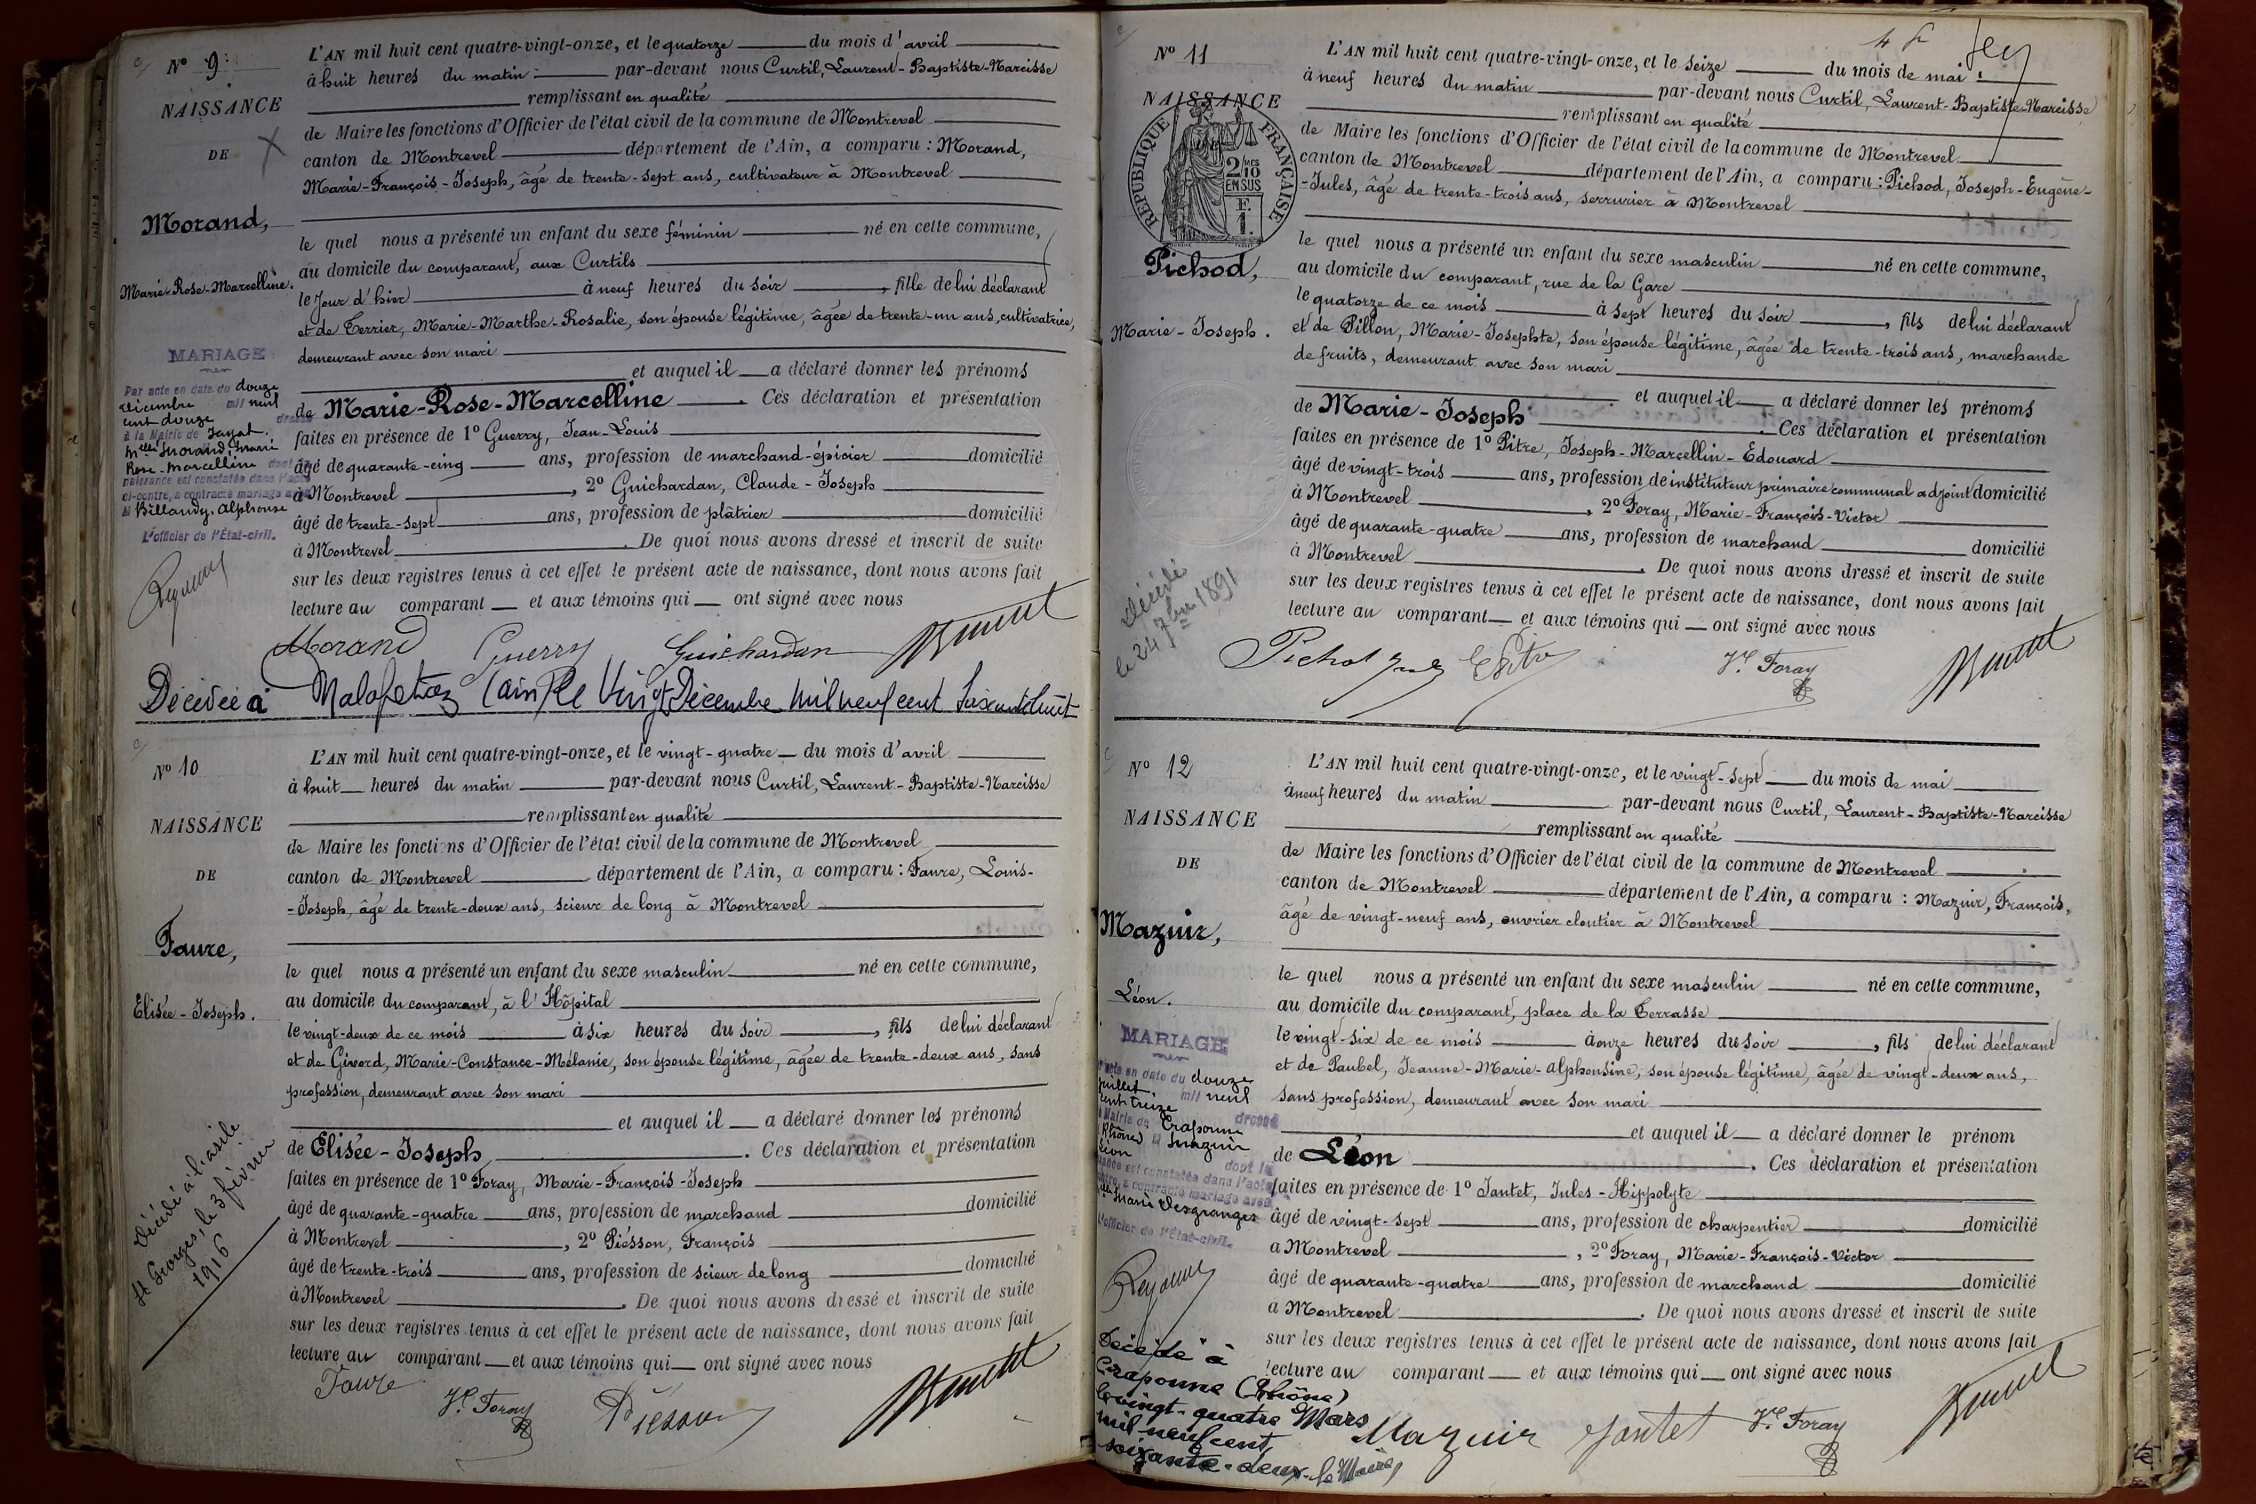 Nº 9.
NAISSANCE
DE
Morand,
Marie-Rose-Marcelline.
MARIAGE
Par acte en date du douze
décembre mil neuf
cent douze dressé
à la Mairie de Jayat.
Mlle Morand, Marie
Rose-Marcelline dont la
naissance est constatée dans l'acte
ci-contre, a contracté mariage avec
M Billandy, Alphonse
L'officier de l'État-civil.
L'AN mil huit cent quatre-vingt-onze, et le quatorze du mois d'avril
à huit heures du matin par-devant nous Curtil, Laurent-Baptiste-Narcisse
remplissant en qualité
de Maire les fonctions d'Officier de l'état civil de la commune de Montrevel
canton de Montrevel département de l'Ain, a comparu : Morand,
Marie-François-Joseph, âgé de trente-sept ans, cultivateur à Montrevel
le quel nous a présenté un enfant du sexe féminin né en cette commune,
au domicile du comparant, aux Curtils
le jour d'hier à neuf heures du soir, fille de lui déclarant
et de Terrier, Marie-Marthe-Rosalie, son épouse légitime, âgée de trente-un ans, cultivatrice,
demeurant avec son mari
et auquel il a déclaré donner les prénoms
de Marie-Rose-Marcelline. Ces déclaration et présentation
faites en présence de 1º Guerry, Jean-Louis
âgé de quarante-cinq ans, profession de marchand-épicier domicilié
à Montrevel, 2º Guichardan, Claude-Joseph
âgé de trente-sept ans, profession de plâtrier domicilié
à Montrevel. De quoi nous avons dressé et inscrit de suite
sur les deux registres tenus à cet effet le présent acte de naissance, dont nous avons fait
lecture au comparant et aux témoins qui ont signé avec nous
Morand Guerry Guichardan
Décédée à Malafretaz (Ain) le Vingt Décembre mil neuf cent soixante huit
Nº 10
NAISSANCE
DE
Faure,
Elisée-Joseph.
Décédé à l'asile
St Georges, le 3 février
1916
L'AN mil huit cent quatre-vingt-onze, et le vingt-quatre du mois d'avril
à huit heures du matin par-devant nous Curtil, Laurent-Baptiste-Narcisse
remplissant en qualité
de Maire les fonctions d'Officier de l'état civil de la commune de Montrevel
canton de Montrevel département de l'Ain, a comparu : Faure, Louis-
-Joseph, âgé de trente-deux ans, scieur de long à Montrevel
le quel nous a présenté un enfant du sexe masculin né en cette commune,
au domicile du comparant, à l'Hôpital
le vingt-deux de ce mois à six heures du soir, fils de lui déclarant
et de Givord, Marie-Constance-Mélanie, son épouse légitime, âgée de trente-deux ans, sans
profession, demeurant avec son mari
et auquel il a déclaré donner les prénoms
de Elisée-Joseph. Ces déclaration et présentation
faites en présence de 1º Foray, Marie-François-Joseph
âgé de quarante-quatre ans, profession de marchand domicilié
à Montrevel, 2º Piésson, François
âgé de trente-trois ans, profession de scieur de long domicilié
à Montrevel. De quoi nous avons dressé et inscrit de suite
sur les deux registres tenus à cet effet le présent acte de naissance, dont nous avons fait
lecture au comparant et aux témoins qui ont signé avec nous
Faure
Vr Foray Piésson
Nº 11
NAISSANCE
RÉPUBLIQUE FRANÇAISE
2 MES
10
EN SUS
F.
1.
Pichod,
Marie-Joseph.
décédé
le 24 7bre 1891
L'AN mil huit cent quatre-vingt-onze, et le seize du mois de mai
à neuf heures du matin par-devant nous Curtil, Laurent-Baptiste-Narcisse
remplissant en qualité
de Maire les fonctions d'Officier de l'état civil de la commune de Montrevel
canton de Montrevel département de l'Ain, a comparu : Pichod, Joseph-Eugène-
-Jules, âgé de trente-trois ans, serrurier à Montrevel
le quel nous a présenté un enfant du sexe masculin né en cette commune,
au domicile du comparant, rue de la Gare
le quatorze de ce mois à sept heures du soir, fils de lui déclarant
et de Pillon, Marie-Josephte, son épouse légitime, âgée de trente-trois ans, marchande
de fruits, demeurant avec son mari
et auquel il a déclaré donner les prénoms
de Marie-Joseph. Ces déclaration et présentation
faites en présence de 1º Pitre, Joseph-Marcellin-Edouard
âgé de vingt-trois ans, profession de instituteur primaire communal adjoint domicilié
à Montrevel, 2º Foray, Marie-François-Victor
âgé de quarante-quatre ans, profession de marchand domicilié
à Montrevel. De quoi nous avons dressé et inscrit de suite
sur les deux registres tenus à cet effet le présent acte de naissance, dont nous avons fait
lecture au comparant et aux témoins qui ont signé avec nous
Pichod EPitre Vr Foray
Nº 12
NAISSANCE
DE
Mazuir,
Léon.
MARIAGE
acte en date du douze
juillet mil neuf
cent treize dressé
Mairie de Craponne
(Rhône) M Mazuir
Léon dont la
naissance est constatée dans l'acte
contre, a contracté mariage avec
Mlle Marie Desgranges
L'officier de l'État-civil.
Décédé à
Craponne (Rhône)
le vingt-quatre Mars
mil neuf cent
soixante-deux. Le Maire,
L'AN mil huit cent quatre-vingt-onze, et le vingt-sept du mois de mai
à neuf heures du matin par-devant nous Curtil, Laurent-Baptiste-Narcisse
remplissant en qualité
de Maire les fonctions d'Officier de l'état civil de la commune de Montrevel
canton de Montrevel département de l'Ain, a comparu : Mazuir, François,
âgé de vingt-neuf ans, ouvrier cloutier à Montrevel
le quel nous a présenté un enfant du sexe masculin né en cette commune,
au domicile du comparant, place de la Terrasse
le vingt-six de ce mois à onze heures du soir, fils de lui déclarant
et de Paubel, Jeanne-Marie-Alphonsine, son épouse légitime, âgée de vingt-deux ans,
sans profession, demeurant avec son mari
et auquel il a déclaré donner le prénom
de Léon. Ces déclaration et présentation
faites en présence de 1º Jantet, Jules-Hippolyte
âgé de vingt-sept ans, profession de charpentier domicilié
a Montrevel, 2º Foray, Marie-François-Victor
âgé de quarante-quatre ans, profession de marchand domicilié
a Montrevel. De quoi nous avons dressé et inscrit de suite
sur les deux registres tenus à cet effet le présent acte de naissance, dont nous avons fait
lecture au comparant et aux témoins qui ont signé avec nous
Mazuir Jantet Vr Foray